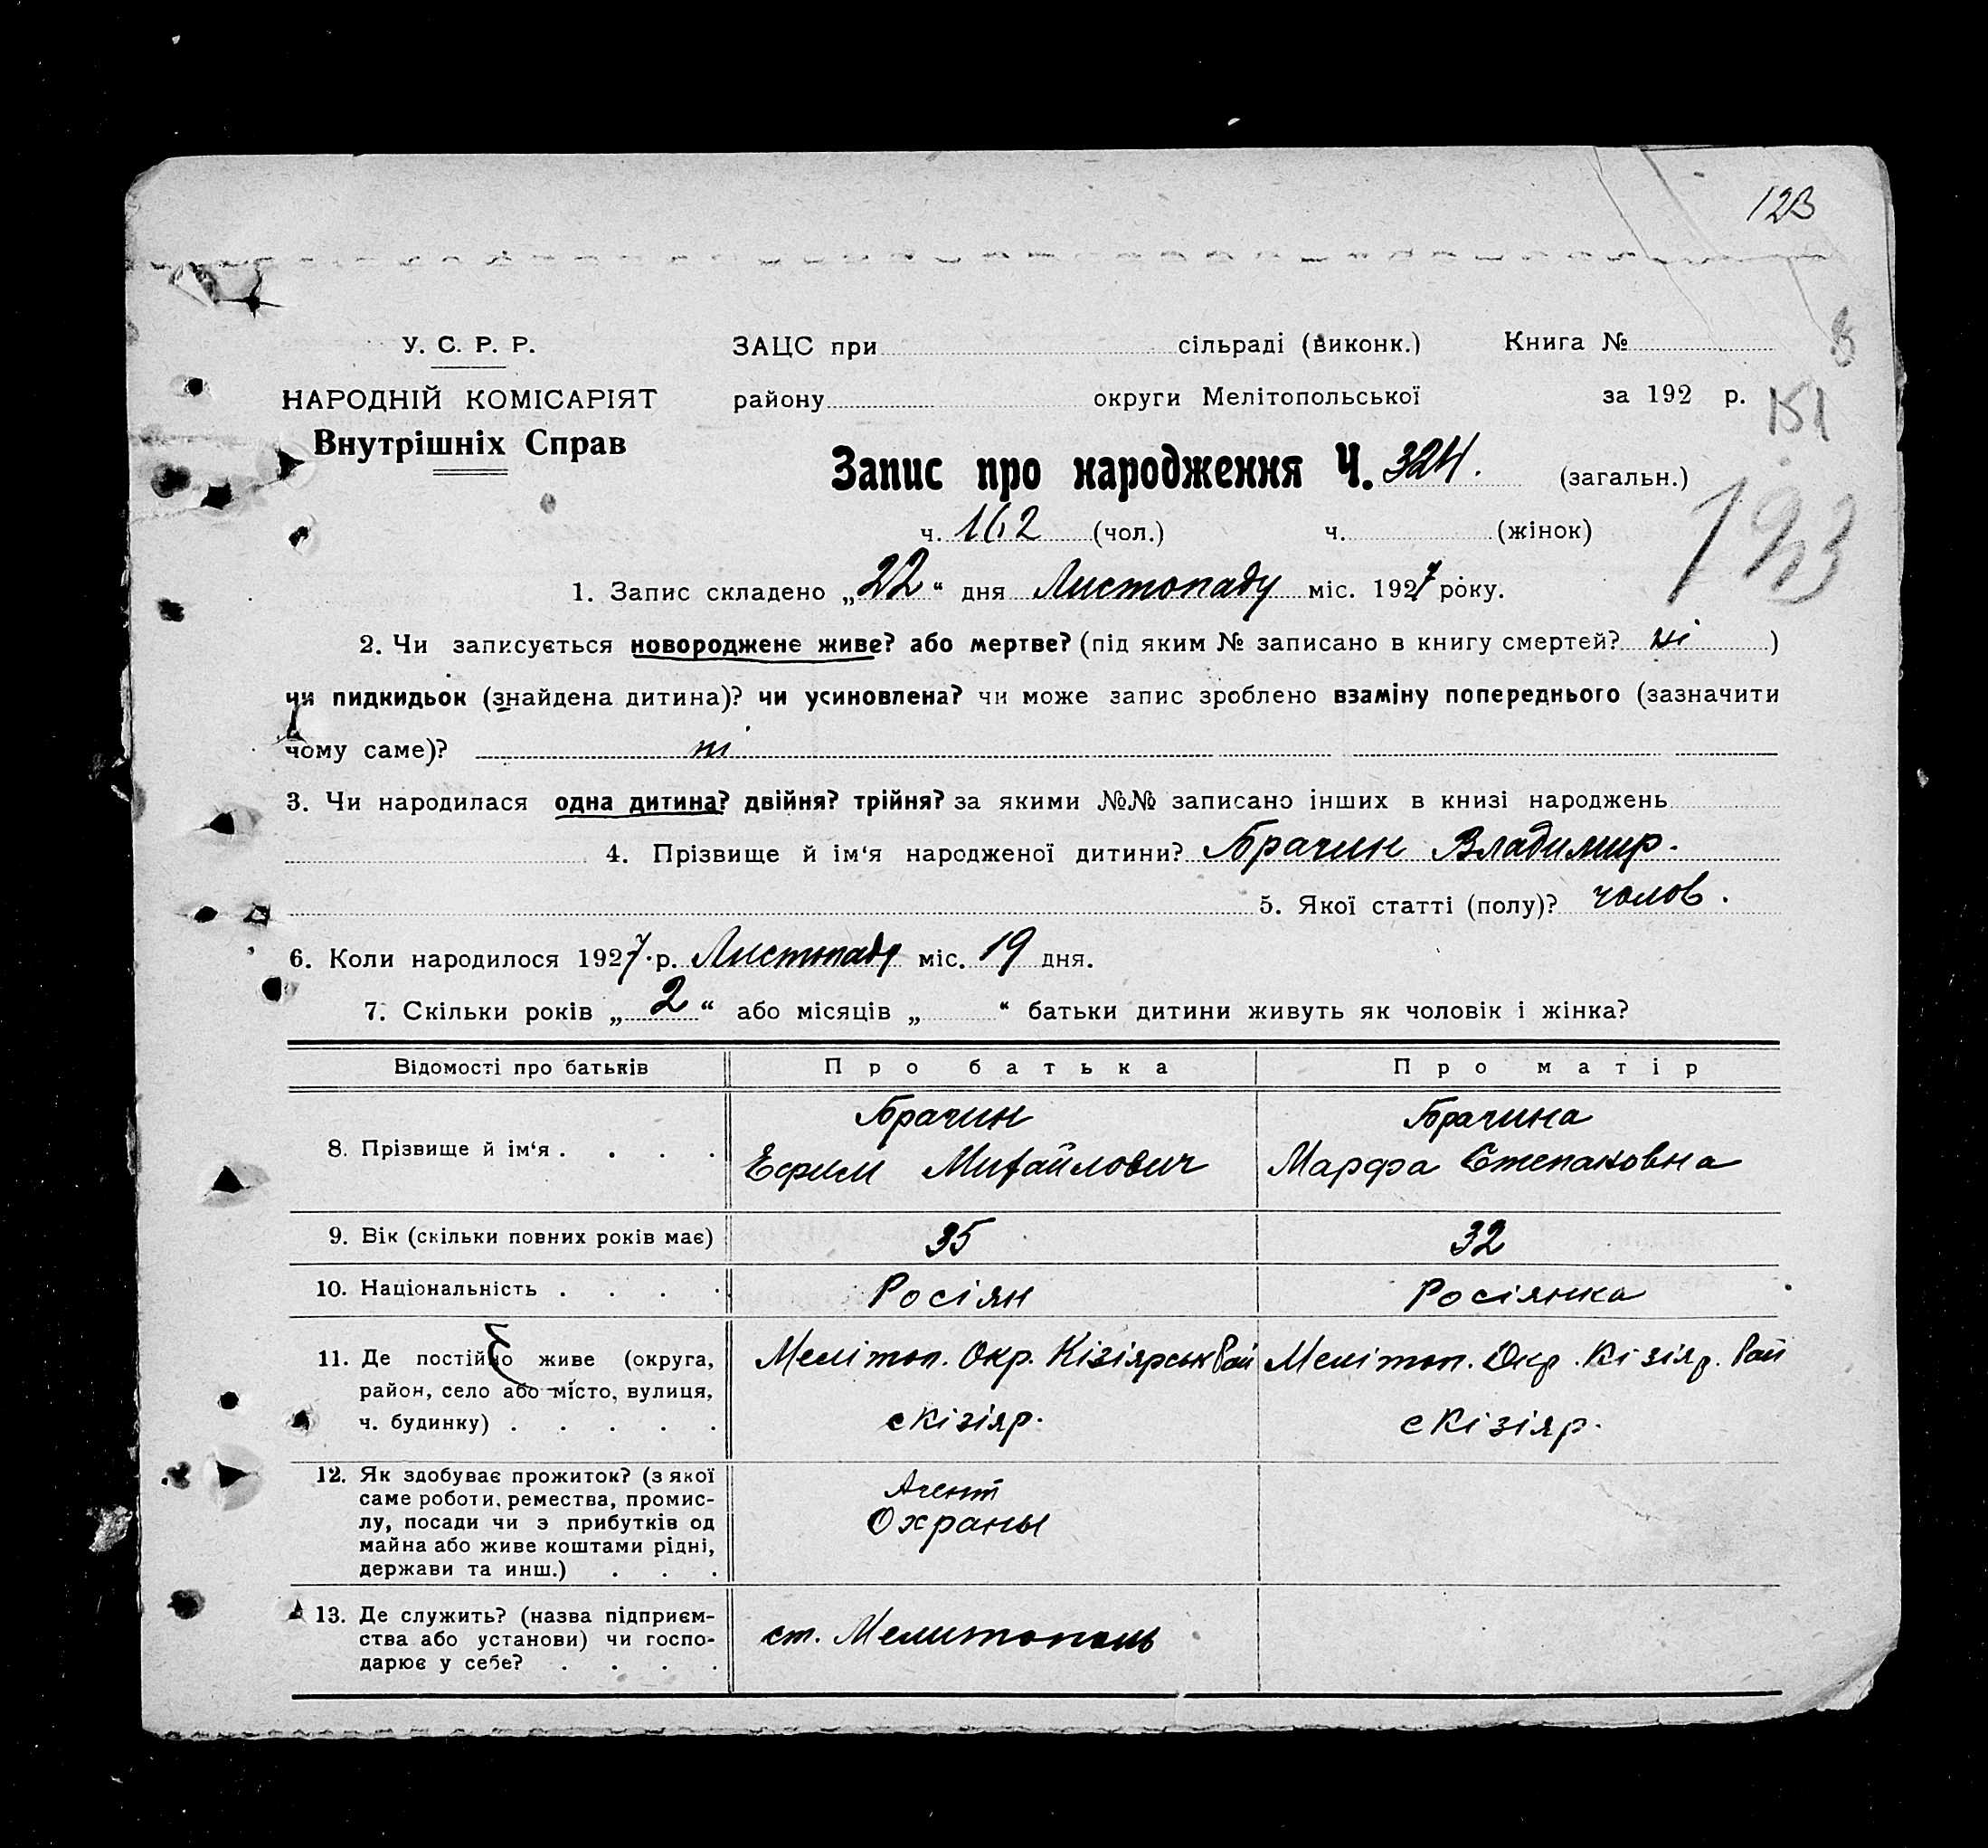 123
У. С. Р. Р. ЗАЦС при сільраді (виконк.) Книга №
8
НАРОДНІЙ КОМІСАРІЯТ району округи Мелітопольської за 192 р.
151
Внутрішніх Справ
Запис про народження Ч. 324. (загальн.)
ч. 162 (чол.) ч. (жінок)
193
1. Запис складено „22“ дня Листопаду міс. 1927 року.
2. Чи записується новороджене живе? або мертве? (під яким № записано в книгу смертей? ні )
чи пидкидьок (знайдена дитина)? чи усиновлена? чи може запис зроблено взаміну попереднього (зазначити
чому саме)? ні
3. Чи народилася одна дитина? двійня? трійня? за якими №№ записано інших в книзі народжень
4. Прізвище й ім‘я народженої дитини? Брачин Владимир.
5. Якої статті (полу)? чолов.
6. Коли народилося 1927 р. Листопаду міс. 19 дня.
7. Скільки років „2“ або місяців „ “ батьки дитини живуть як чоловік і жінка?
Відомості про батьків Про батька Про матір
Брачин Брачина
8. Прізвище й ім‘я . . . . Ефим Михайлович Марфа Степановна
9. Вік (скільки повних років має) 35 32
10. Національність . . . . Росіян Росіянка
11. Де постійно живе (округа, Мелітоп. Окр. Кізіярськ Рай Мелітоп. Окр. Кізіяр. Рай
район, село або місто, вулиця,
ч. будинку) . . . . . с Кізіяр. с Кізіяр.
12. Як здобуває прожиток? (з якої
саме роботи, ремества, промис- Агент
лу, посади чи з прибутків од Охраны
майна або живе коштами рідні,
держави та инш.) . . .
13. Де служить? (назва підприєм-
ства або установи) чи госпо- ст. Мелитополь
дарює у себе? . . . .